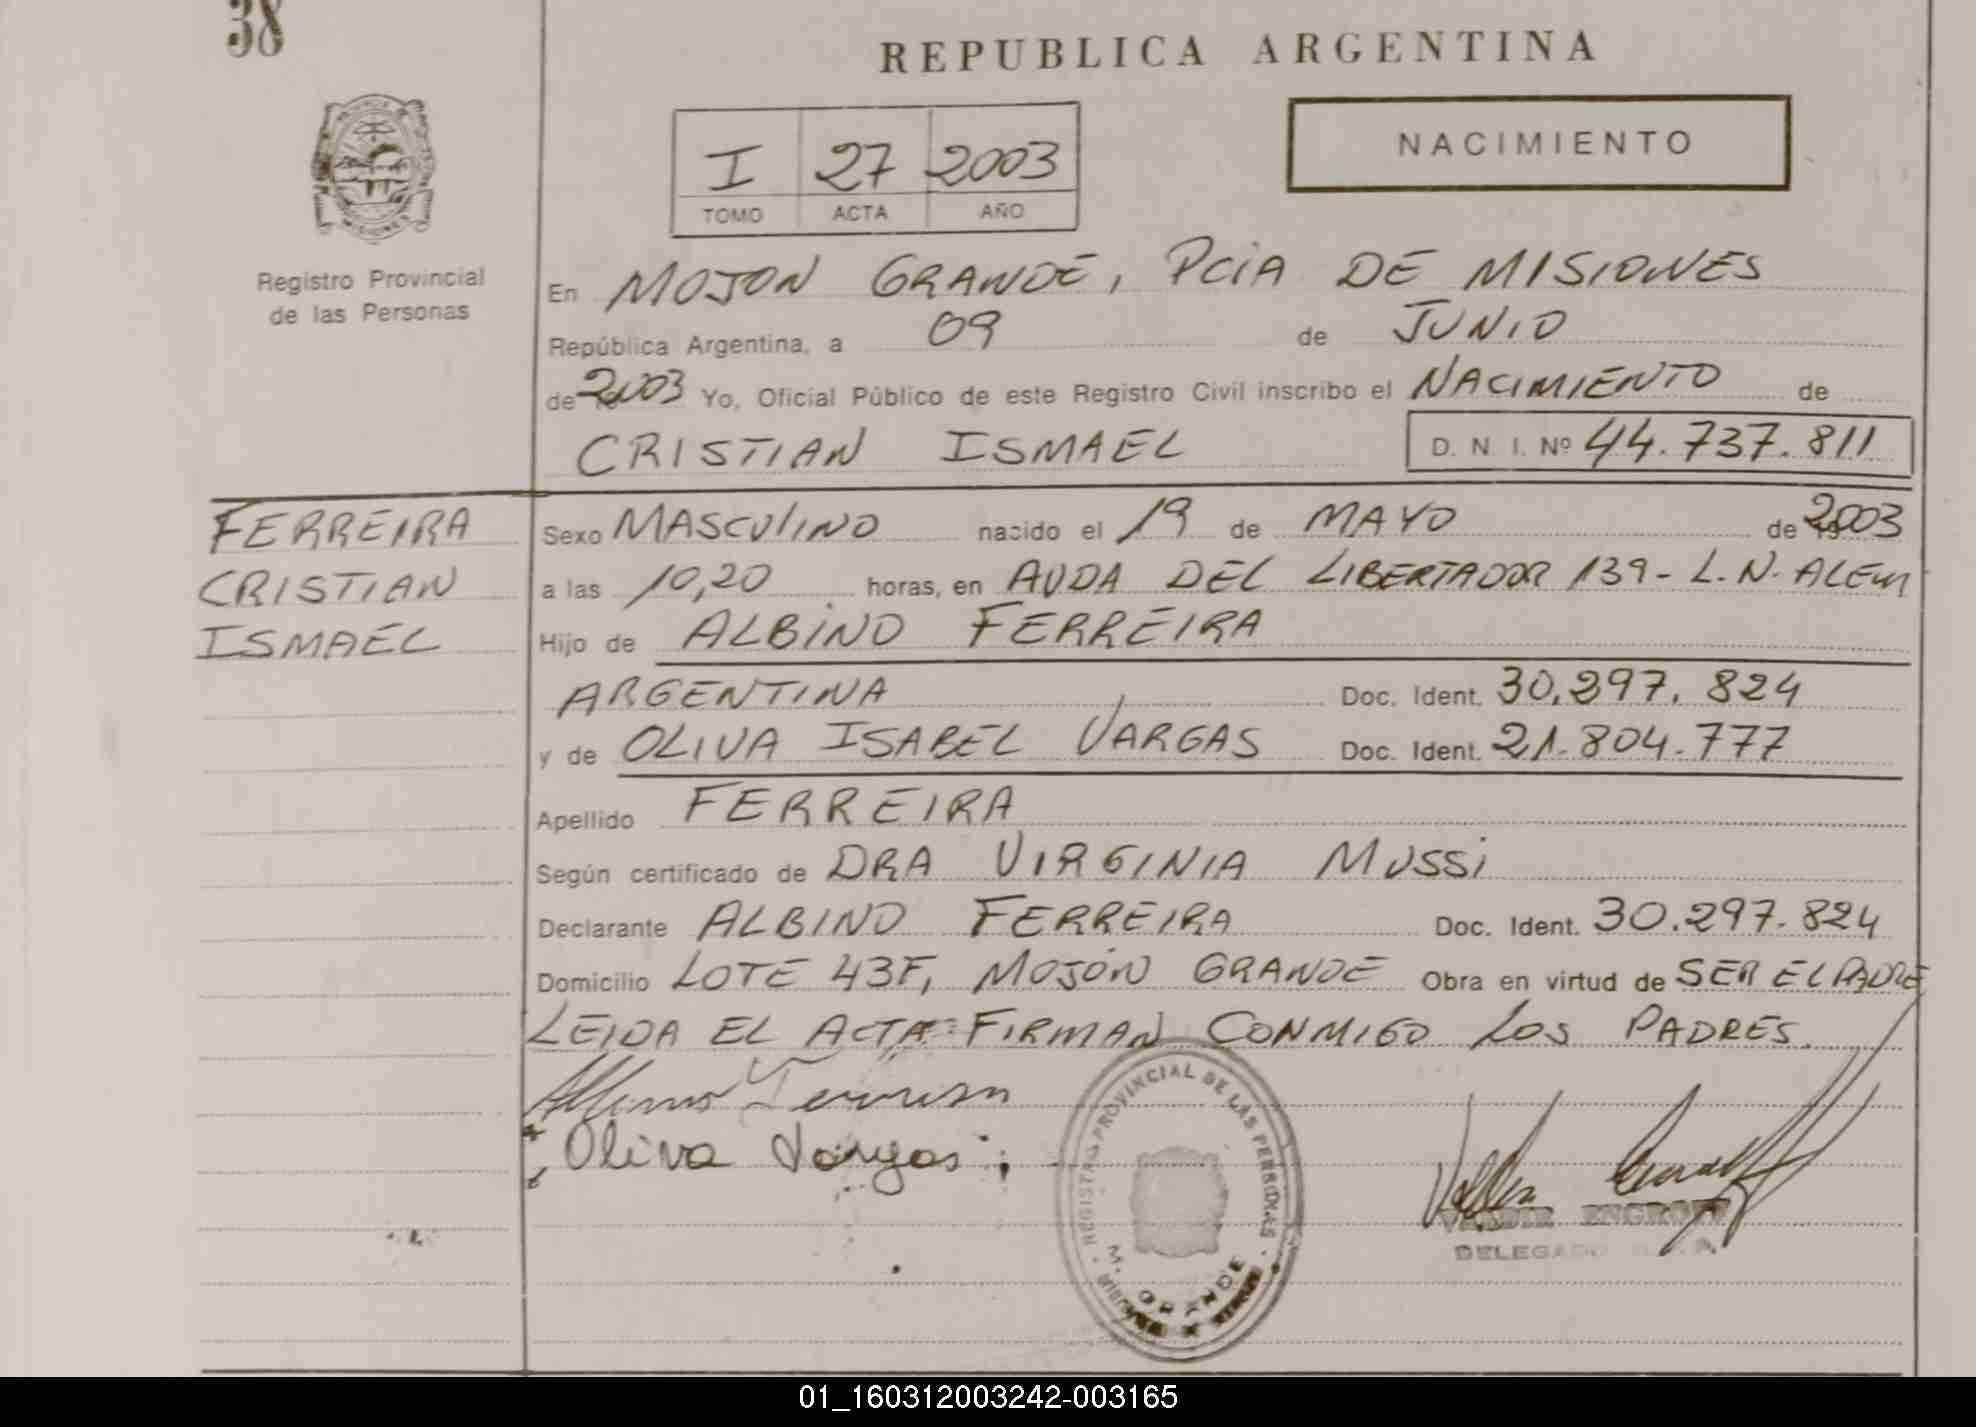 38
REPUBLICA ARGENTINA
NACIMIENTO
I 27 2003
TOMO ACTA AÑO
Registro Provincial
de las Personas
En MOJON GRANDE, PCIA DE MISIONES
República Argentina, a 09 de JUNIO
de 2003 Yo, Oficial Público de este Registro Civil inscribo el NACIMIENTO de
CRISTIAN ISMAEL D. N. I. Nº 44.737.811
FERREIRA
CRISTIAN
ISMAEL
Sexo MASCULINO nacido el 19 de MAYO de 2003
a las 10,20 horas, en AVDA DEL LIBERTADOR 139- L.N. ALEM
Hijo de ALBINO FERREIRA
ARGENTINA Doc. Ident. 30.297.824
y de OLIVA ISABEL VARGAS Doc. Ident. 21.804.777
Apellido FERREIRA
Según certificado de DRA VIRGINIA MUSSI
Declarante ALBINO FERREIRA Doc. Ident. 30.297.824
Domicilio LOTE 43F, MOJÓN GRANDE Obra en virtud de SER EL PADRE
LEIDA EL ACTA FIRMAN CONMIGO LOS PADRES.
Oliva Vargas
REGISTRO PROVINCIAL DE LAS PERSONAS
M. GRANDE
DELEGADO
01_160312003242-003165